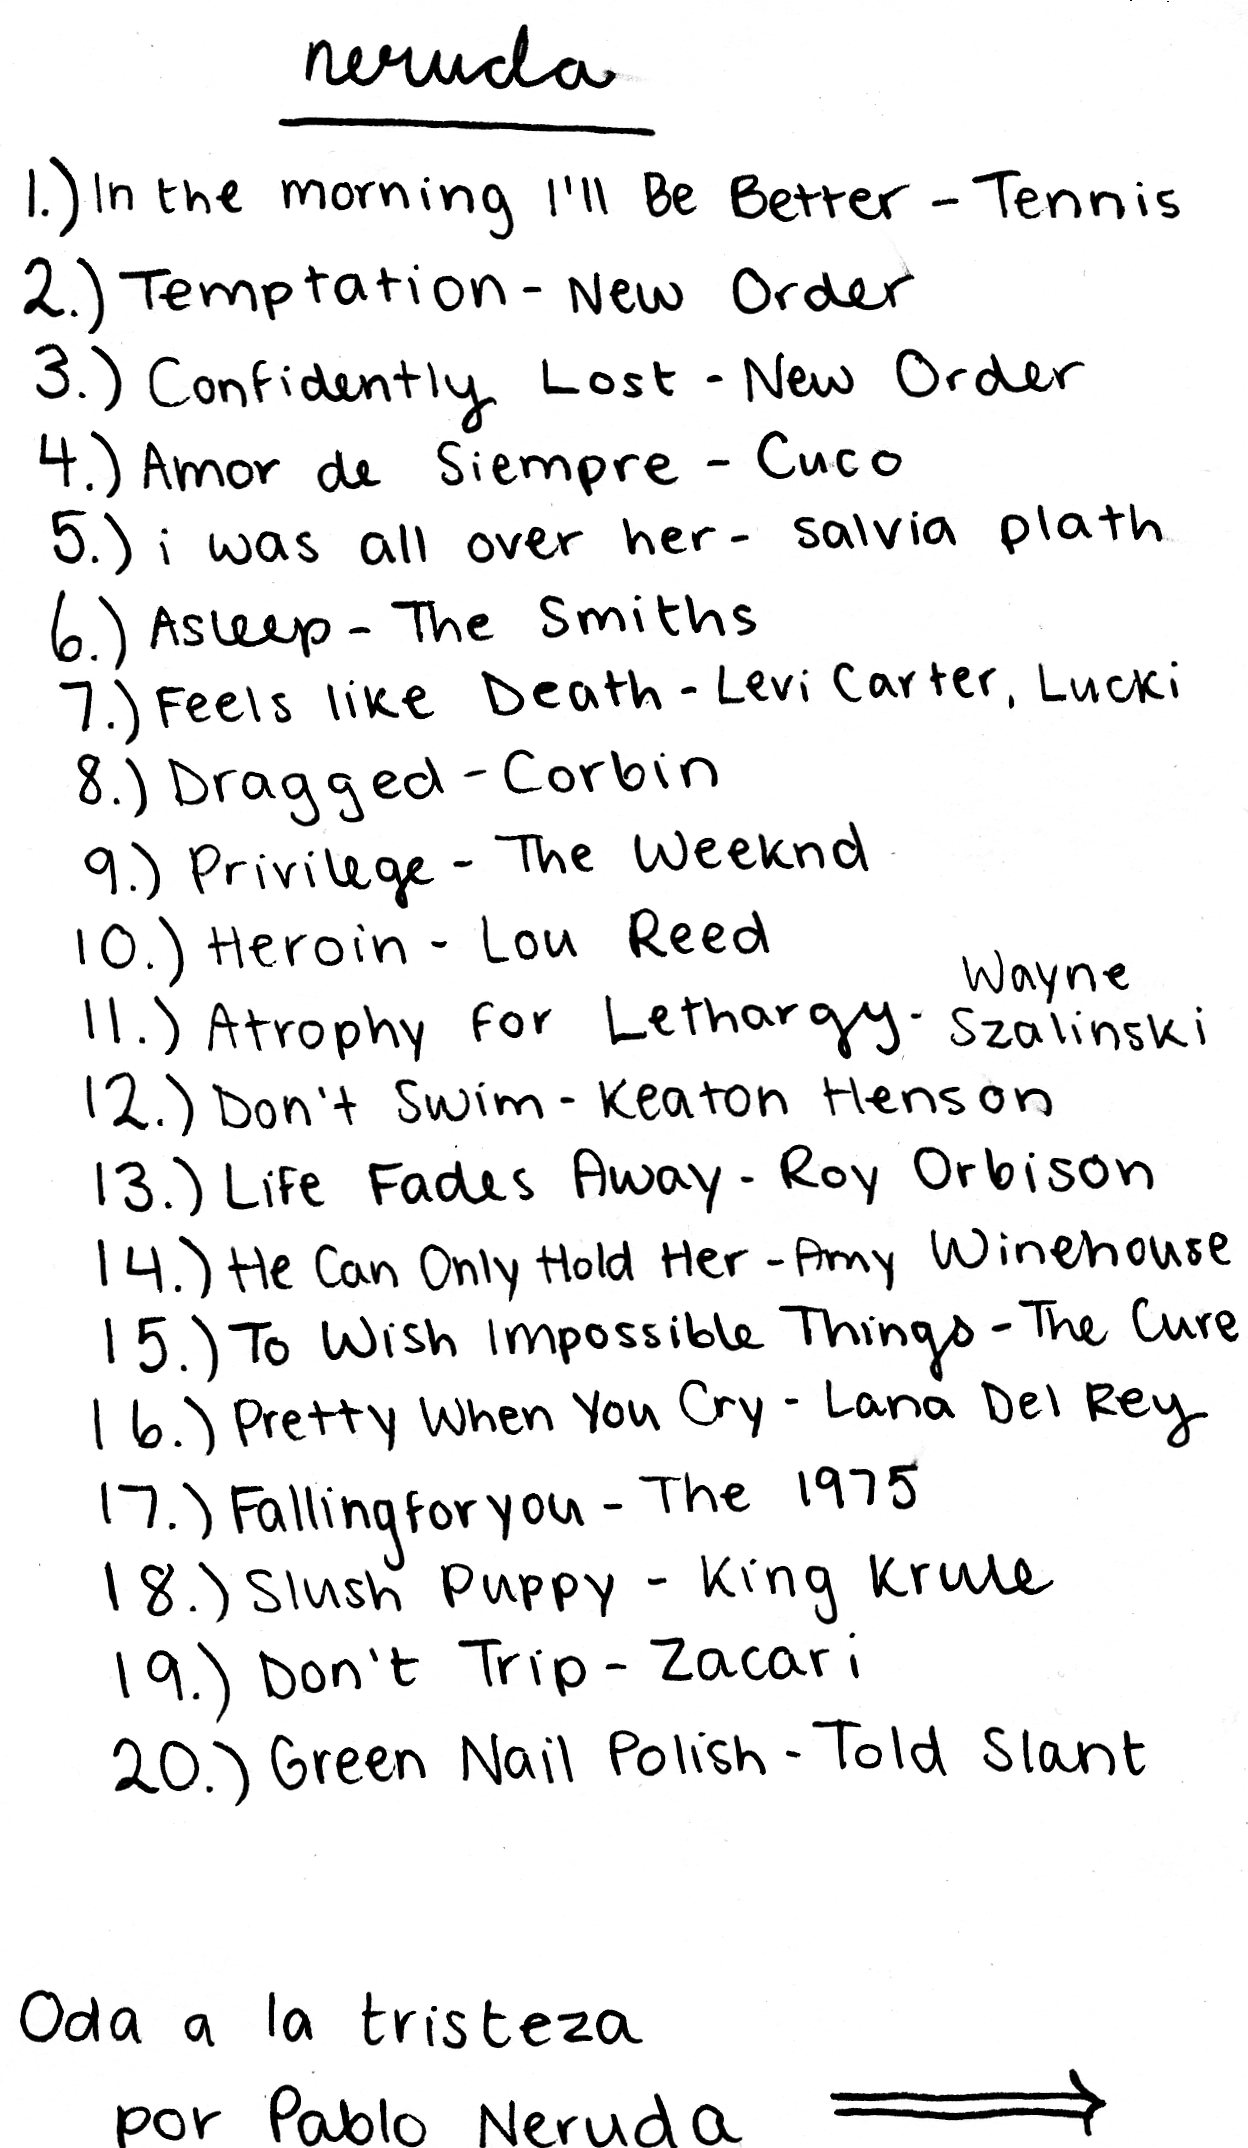 neruda
1.) In the morning I'll Be Better - Tennis
2.) Temptation - New Order
3.) Confidently Lost - New Order
4.) Amor de Siempre - Cuco
5.) i was all over her - salvia plath
6.) Asleep - The Smiths
7.) Feels like Death - Levi Carter, Lucki
8.) Dragged - Corbin
9.) Privilege - The Weeknd
10.) Heroin - Lou Reed
11.) Atrophy for Lethargy - Wayne Szalinski
12.) Don't Swim - Keaton Henson
13.) Life Fades Away - Roy Orbison
14.) He Can Only Hold Her - Amy Winehouse
15.) To Wish Impossible Things - The Cure
16.) Pretty When You Cry - Lana Del Rey
17.) Fallingforyou - The 1975
18.) Slush Puppy - King Krule
19.) Don't Trip - Zacari
20.) Green Nail Polish - Told Slant
Oda a la tristeza
por Pablo Neruda